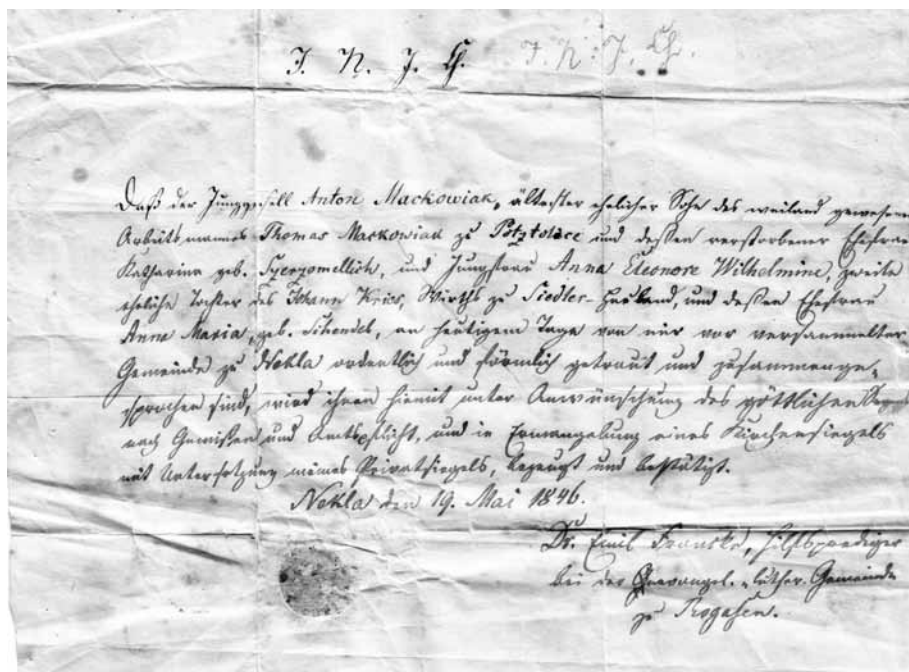 J. N. J. Ch. J. N. J. Ch.
Daß der Junggesell Anton Mackowiak, ältester ehelicher Sohn des weiland gewesenen
Arbeitsmannes Thomas Mackowiak zu und deßen verstorbener Ehefrau
Katharina geb. und Jungfrau Anna Eleonore Wilhelmine, zweite
eheliche Tochter des Johann Kries, Wirths zu Siedler-Hauland, und deßen Ehefrau
Anna Maria, geb. an heutigem Tage von mir vor versammelter
Gemeinde zu Nekla ordentlich und förmlich getraut und zusammenge-
sprochen sind, wird ihnen hiemit unter Anwünschung des göttlichen Segens
nach Gewißen und Amtspflicht, und in Ermangelung eines Kirchensiegels
mit Untersetzung meines Privatsiegels, bezeugt und bestätigt.
Nekla den 19. Mai 1846.
Dr. Emil Francke, Hilfsprediger
bei der evangel.-luther. Gemeinde
zu Rogasen.